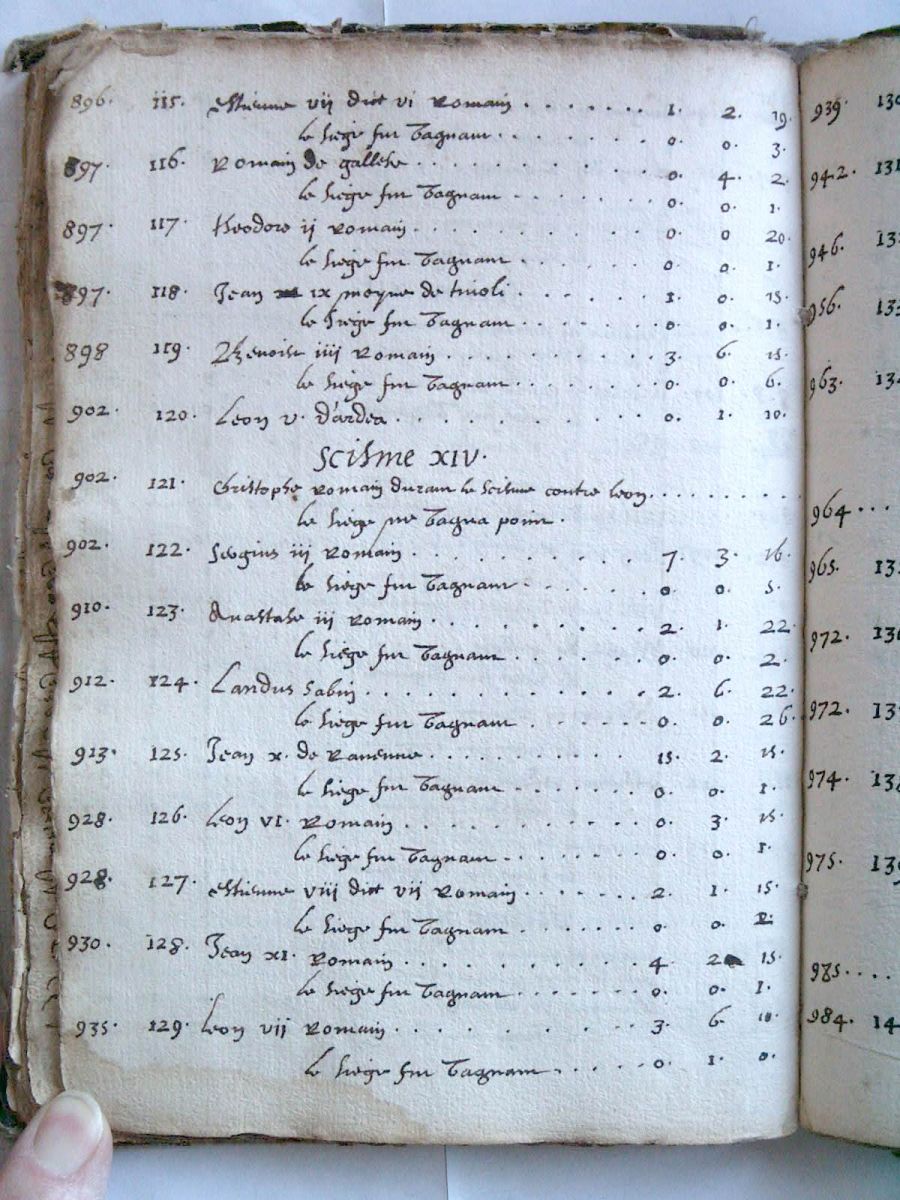 896. 115. Estienne vij dict vi Romain . . . . . . . 1. 2. 19.
le siege fut vagnant . . . . . . . 0. 0. 3.
897. 116. Romain de gallese . . . . . . . . . 0. 4. 2.
le siege fut vagnant . . . . . . . 0. 0. 1.
897. 117. Theodore ij Romain . . . . . . . . . 0. 0 20.
le siege fut vagnant . . . . . . . 0. 0. 1.
897. 118. Jean ix moyne de tivoli . . . . . . 1. 0. 15.
le siege fut vagnant . . . . . . . 0. 0. 1.
898 119. Benoist iiij Romain . . . . . . . . . 3. 6. 15.
le siege fut vagnant . . . . . . . 0. 0. 6.
902. 120. Leon v. d'ardea . . . . . . . . . . 0. 1. 10.
Scisme XIV.
902. 121. Christophe Romain durant le scisme contre leon . . . . . . . . .
le siege ne vagna point .
902. 122. Sergius iij Romain . . . . . . . . 7. 3. 16.
le siege fut vagnant . . . . . . 0. 0. 5.
910. 123. Anastase iij Romain . . . . . . . . 2. 1. 22.
le siege fut vagnant . . . . . . 0. 0. 2.
912. 124. Landus Sabin . . . . . . . . . . . 2. 6. 22.
le siege fut vagnant . . . . . . 0. 0. 26.
913. 125. Jean x. de Ravenne . . . . . . . . . 15. 2. 15.
le siege fut vagnant . . . . . . 0. 0. 1.
928. 126. Leon VI. Romain . . . . . . . . . . 0. 3. 15.
le siege fut vagnant . . . . . . 0. 0. 1.
928. 127. Estienne viij dict vij Romain . . . . . . 2. 1. 15.
le siege fut vagnant . . . . . . 0. 0.
930. 128. Jean XI. Romain . . . . . . . . . . 4. 2 15.
le siege fut vagnant . . . . . . 0. 0. 1.
935. 129. Leon vij Romain . . . . . . . . . . 3. 6.
le siege fut vagnant . . . . . . 0. 1. 0.
939.
942.
946.
956.
963.
964 . . .
965.
972.
972.
974.
975.
985 . . . .
984.